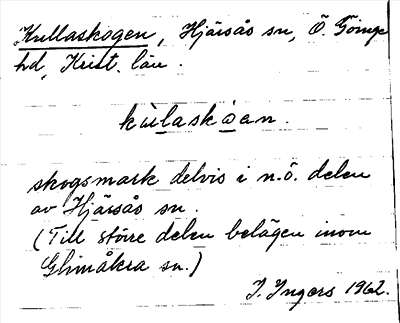 Kullaskogen, Hjärsås sn, Ö. Göinge
hd, Krist. län.
kùlaskòan.
skogsmark delvis i n.ö. delen
av Hjärsås sn.
(Till större delen belägen inom
Glimåkra sn.)
I. Ingers 1962.